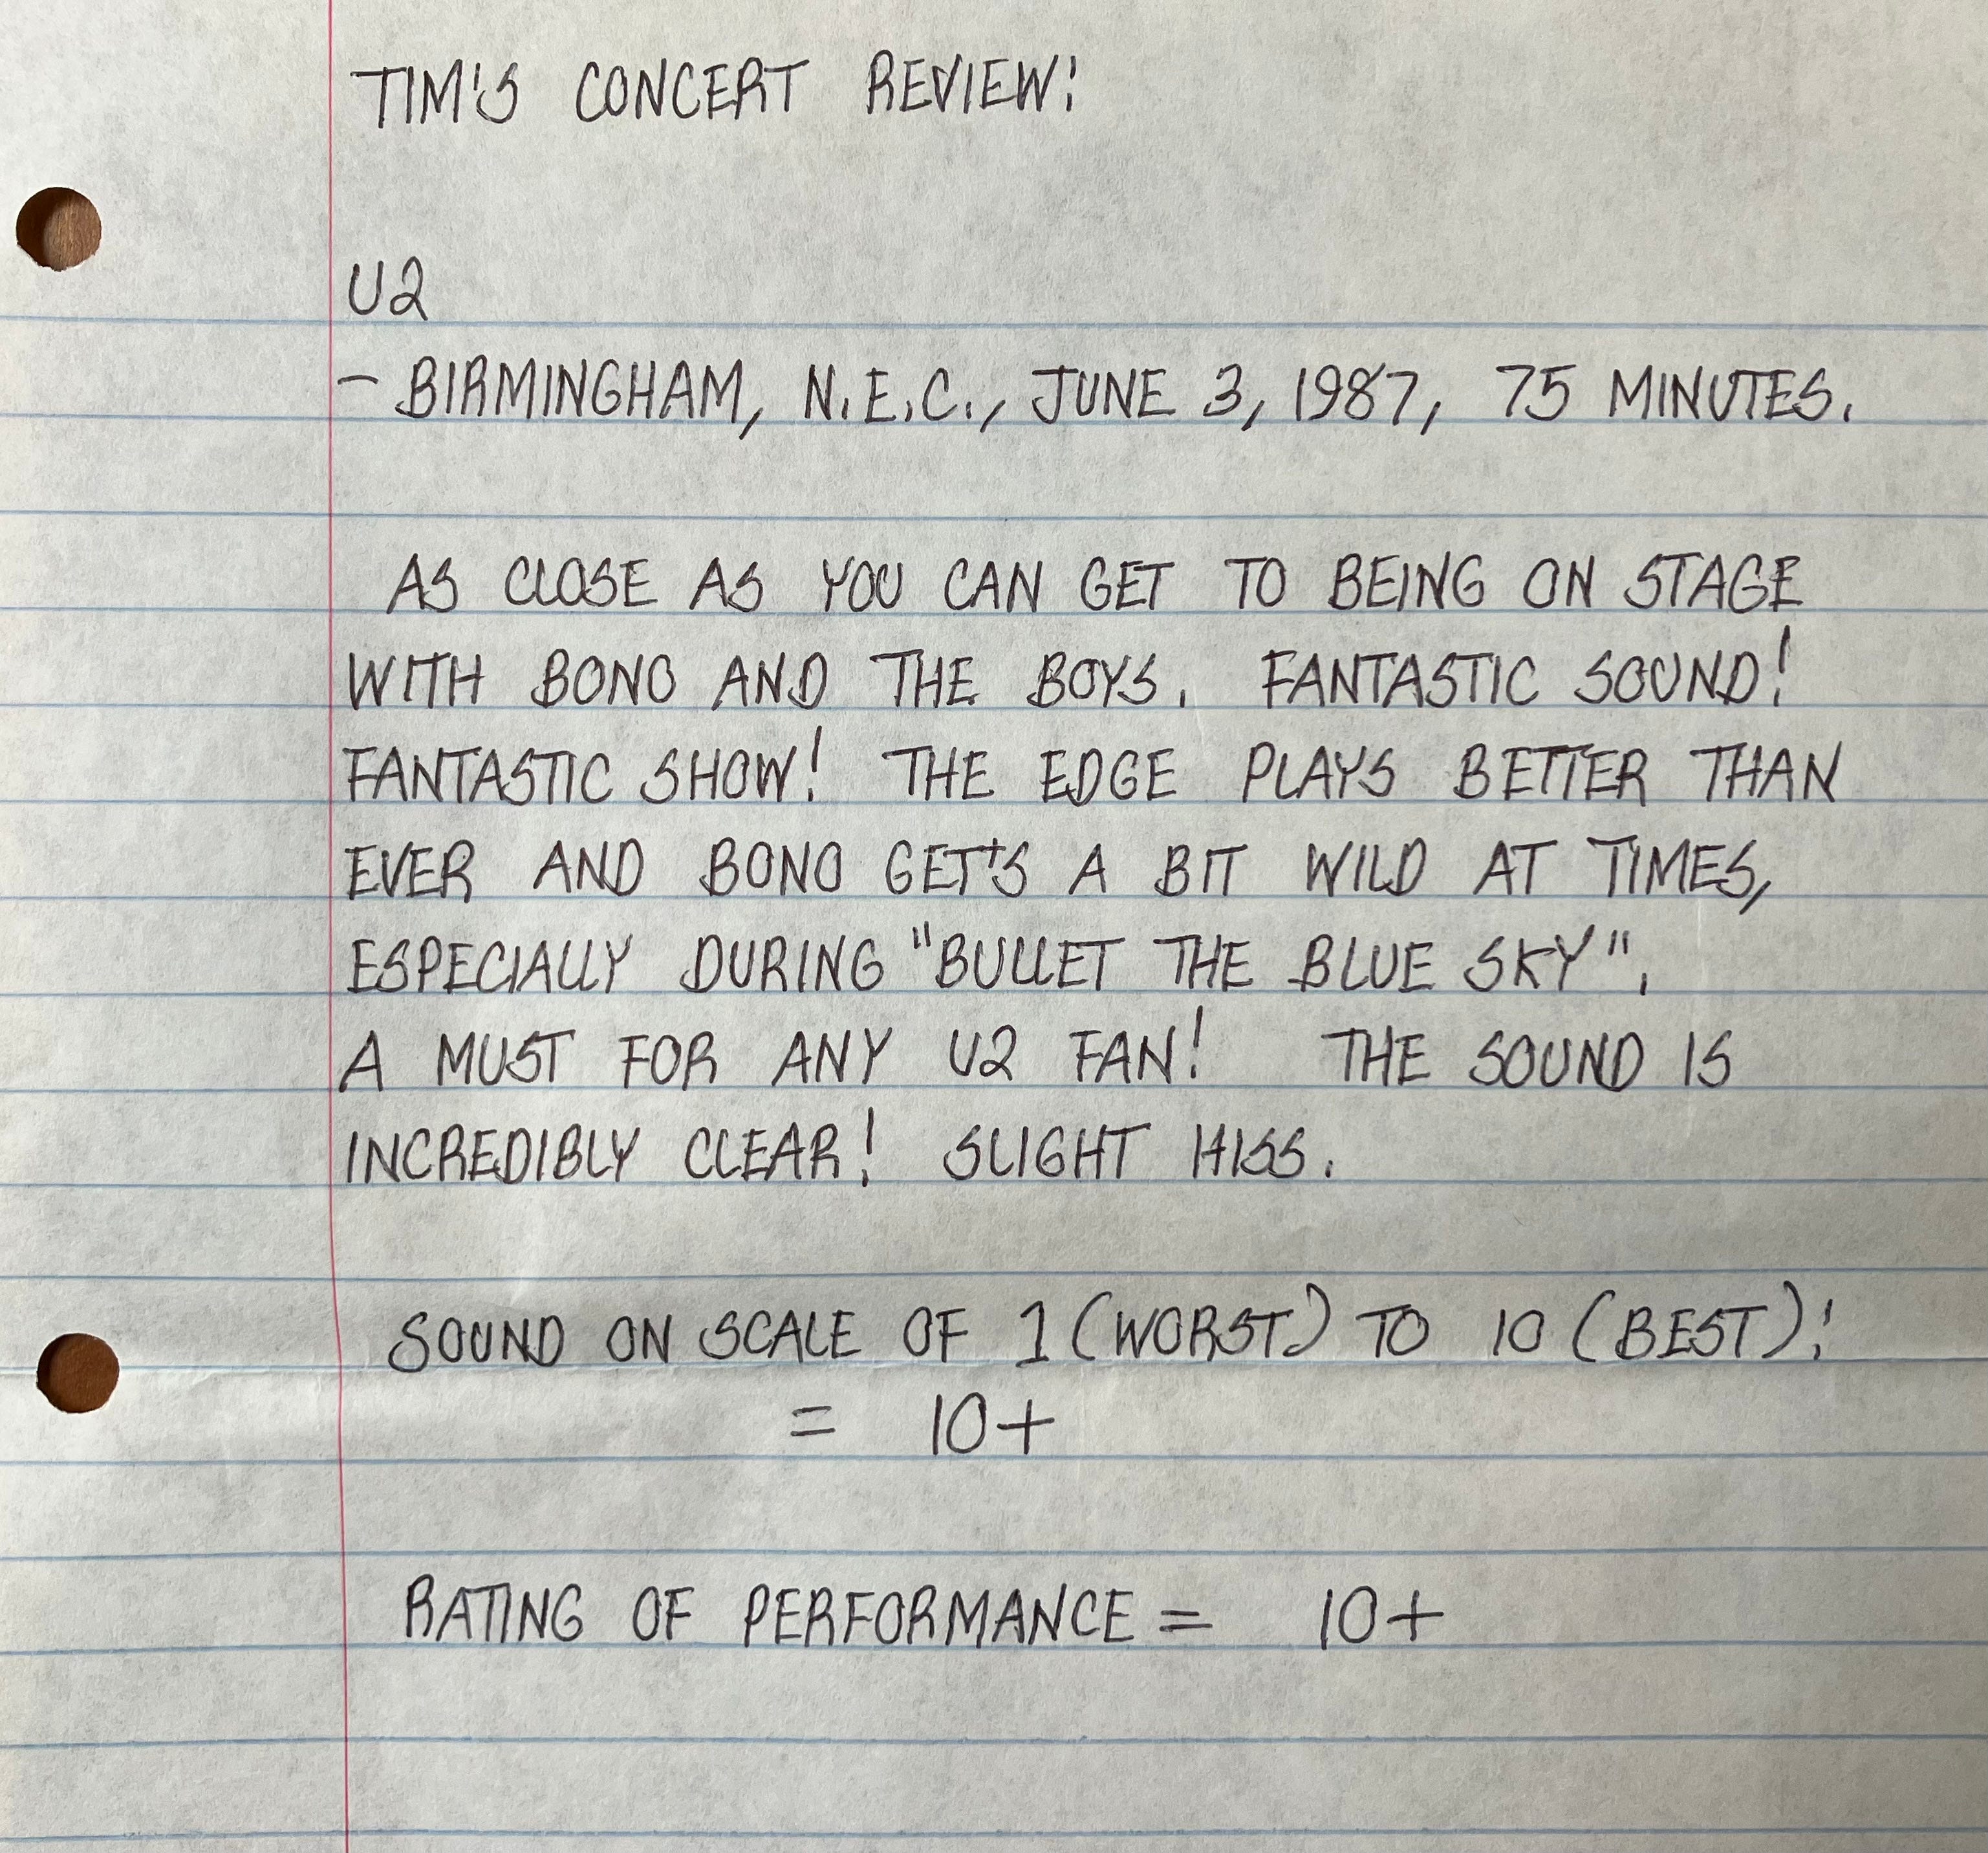 TIM'S CONCERT REVIEW!
U2
- BIRMINGHAM, N.E.C., JUNE 3, 1987, 75 MINUTES.
AS CLOSE AS YOU CAN GET TO BEING ON STAGE
WITH BONO AND THE BOYS. FANTASTIC SOUND!
FANTASTIC SHOW! THE EDGE PLAYS BETTER THAN
EVER AND BONO GET'S A BIT WILD AT TIMES,
ESPECIALLY DURING "BULLET THE BLUE SKY".
A MUST FOR ANY U2 FAN! THE SOUND IS
INCREDIBLY CLEAR! SLIGHT HISS.
SOUND ON SCALE OF 1 (WORST) TO 10 (BEST)!
= 10+
RATING OF PERFORMANCE = 10+